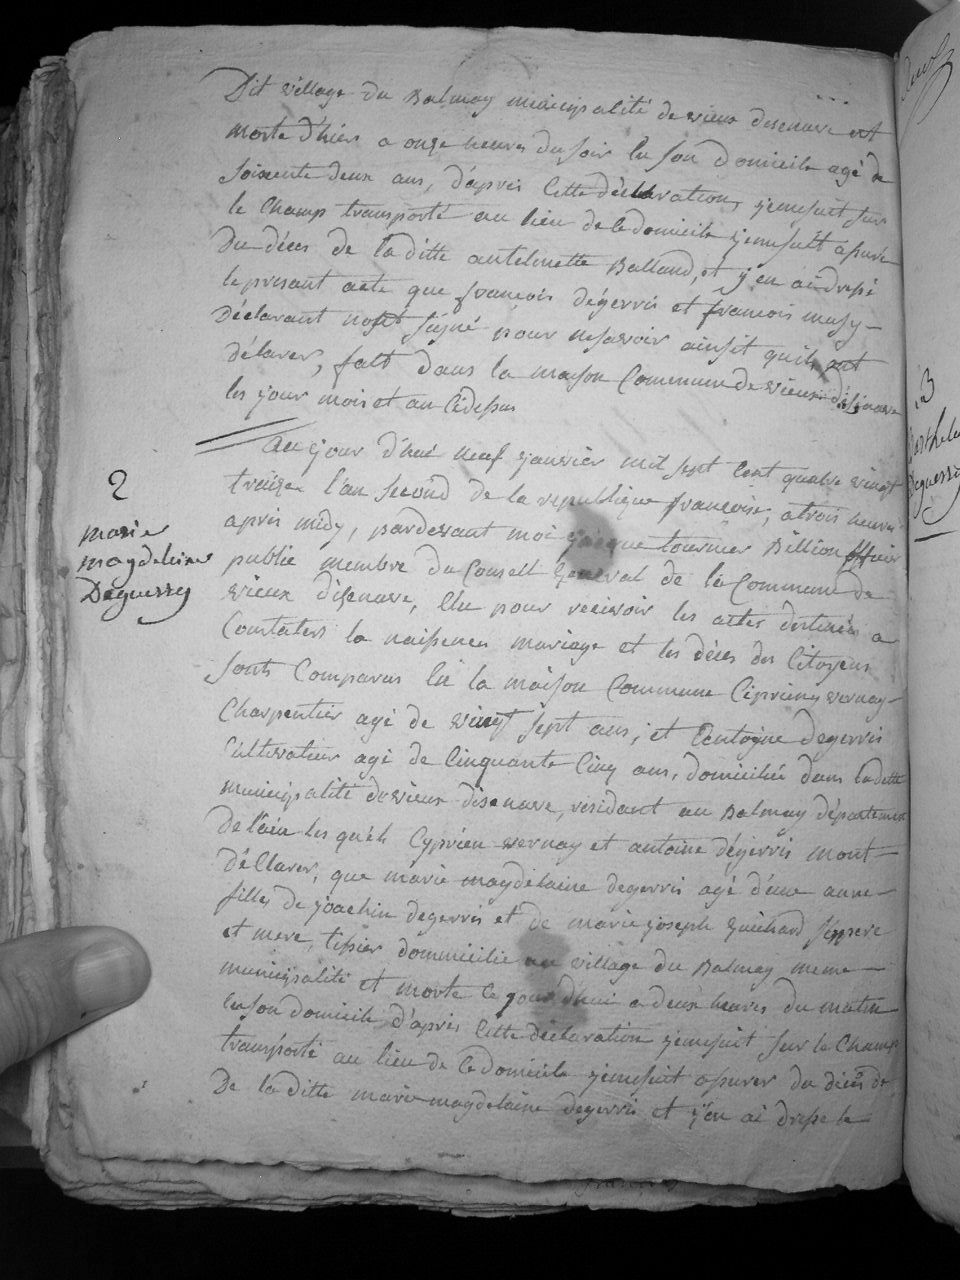 Dit village du Balmay municipalité de vieux disenave est
morte d'hier a onze heures du soir en son domicile agé de
soixente deux ans, d'apres cette déclaration, jemesuit sur
le champ transporté au lieu de ce domicile jemesuit asuré
Du déces de la ditte antelmette Balland, et j'en ai drepé
le present acte que françois dégerris et francois musy
Déclarant n'ont signé pour nesavoir ainsit quils ont
délarer, fait dans la maison Commune de vieux disenave
les jour mois et an cidessus
2
marie
magdelaine
Deguerry
Au jour d'hui neuf janvier mil sept cent quatre vingt
traize l'an second de la republique françoise, a trois heures
apres midy, pardevant moi jacque tournier Billion officier
public membre du Conseil general de la Commune de
vieux disenave, élu pour recevoir les actes destinés a
Constaters la naissences mariage et les déces des Citoyens
sonts Comparus en la maison Commune Cipriens vernay
Charpentier agé de vingt sept ans, et Centoine degerris
Cultivateur agé de Cinquante Cinq ans, domicilié dans ladette
municipalité de vieux disenave, résidant au Balmay département
de l'ain les quels Cyprien vernay et antoine dégerris m'ont
déClarer, que marie magdelaine degerris agé d'une anne
filles de joachin degerris et de marie joseph guichard
et mere, tissier dommicilié au village du Balmay meme
municipalité et morte ce jour d'hui a deux heures du matin
en son domicile d'apres cette déclaration jemesuit sur le Champ
transporté au lieu de ce domicile jemesuit asurer du déces de
De la ditte marie magdelaine degerris et j'en ai drepe le
3
Barthele
Deguerry